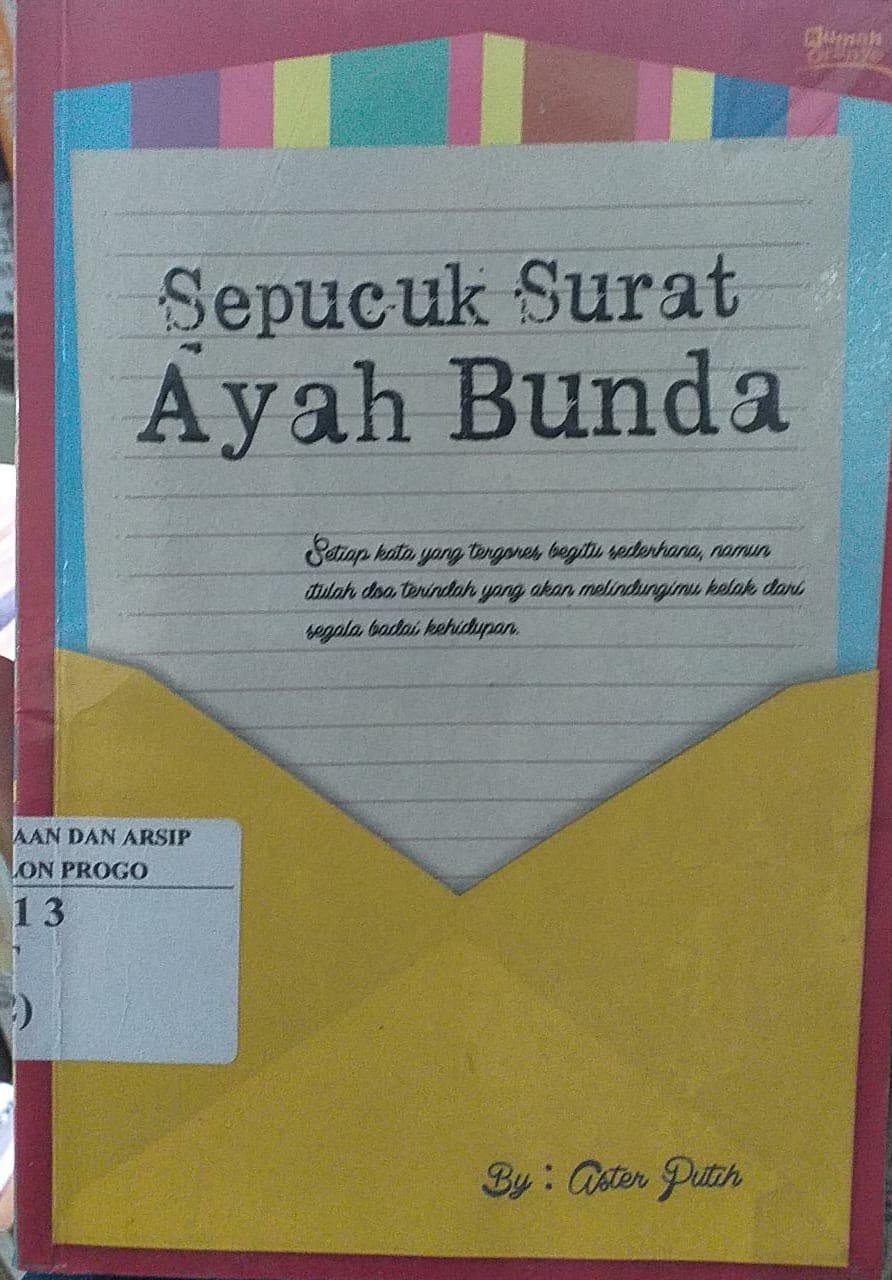 Sepucuk Surat
Ayah Bunda
Setiap kata yang tergores begitu sederhana, namun
itulah doa terindah yang akan melindungimu kelak dari
segala badai kehidupan.
AAN DAN ARSIP
LON PROGO
13
By : Aster Putih